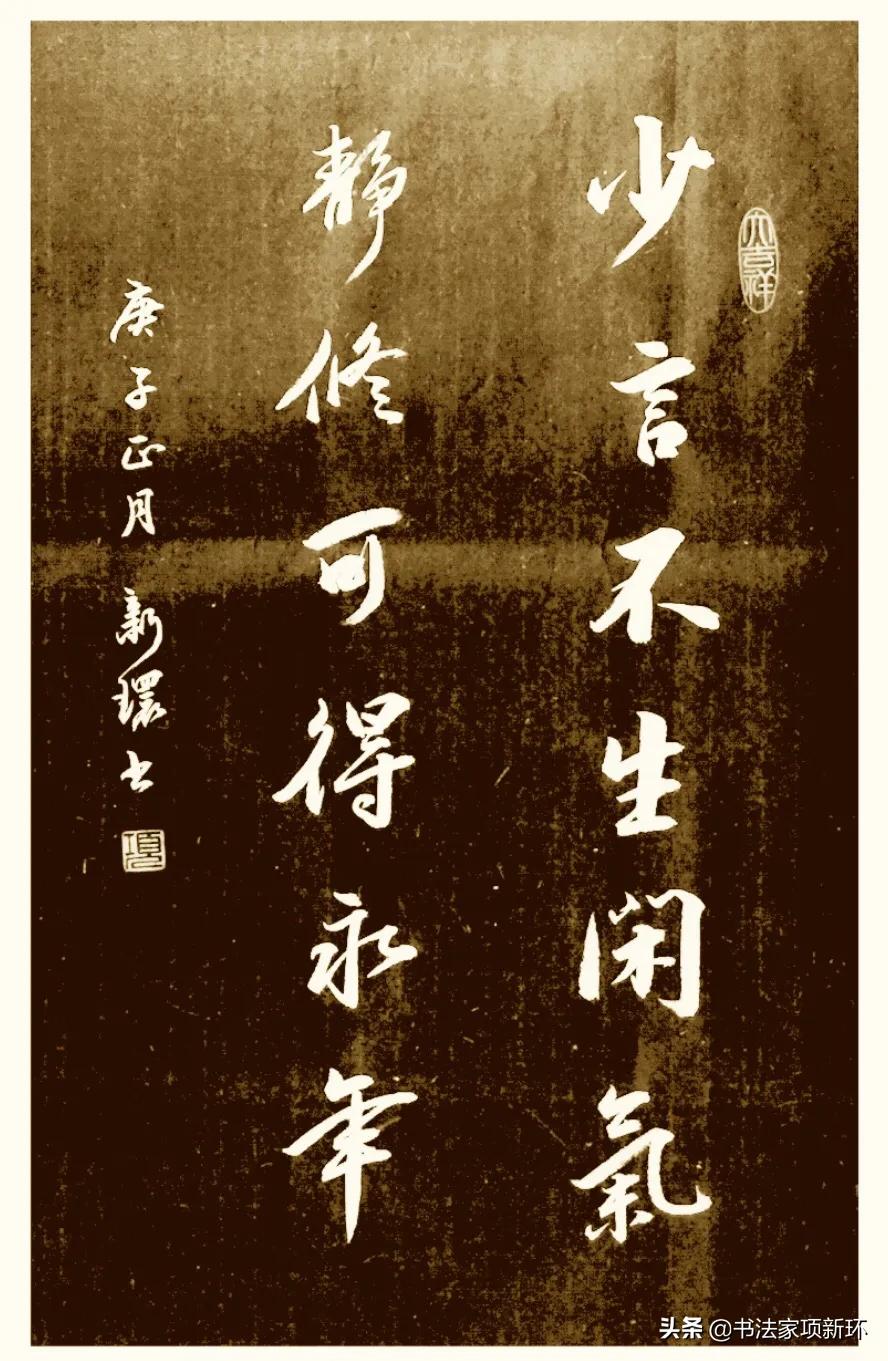 大吉祥
少言不生閑氣
靜修可得永年
庚子正月 新環书
项
头条 @书法家项新环